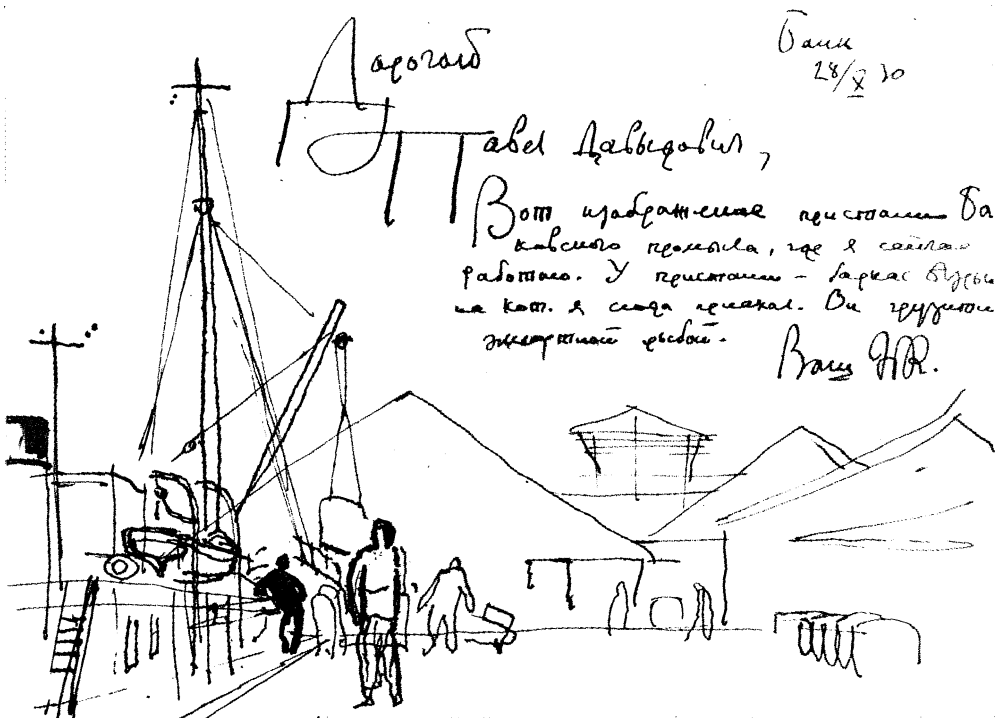 Баки
28/X 30
Дорогой
Павел Давыдович,
Вот изображение пристани Ба
ковского промысла, где я сейчас
работаю. У пристани – баркас
на кот. я сюда приехал. Он грузится
экспортной рыбой.
Ваш